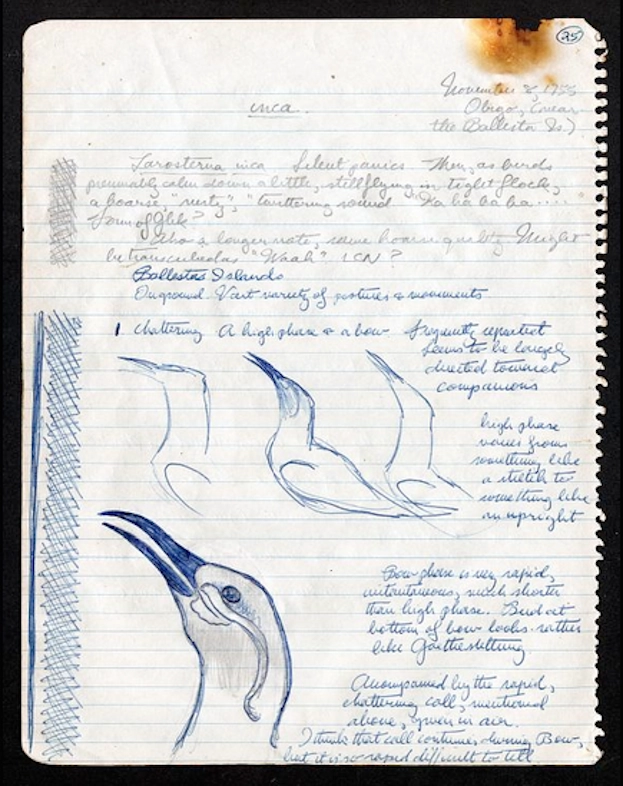 25
November 8, 1955
inca.
(near
the Ballesta Is)
Larosterna inca Silent panics Then, as birds
presumably calm down a little, still flying in tight flock,
a hoarse, "rusty", "chattering sound "Ka ba ba ba ....."
Form of ?
Also a longer note, same hoarse quality Might
be transcribed as "Waah" ICN ?
Ballestas Islands
On ground. Vast variety of postures & movements
1 Chattering A high phase & a bow. Frequently repeated
Seems to be largely
directed toward
companions
high phase
varies from
something like
a stretch to
something like
an upright
Bow phase is very rapid,
instantaneous, much shorter
than high phase. Bird at
bottom of bow looks rather
like
Accompanied by the rapid,
chattering call, mentioned
above, given in air.
I think that call continues during Bow,
but it is so rapid difficult to tell